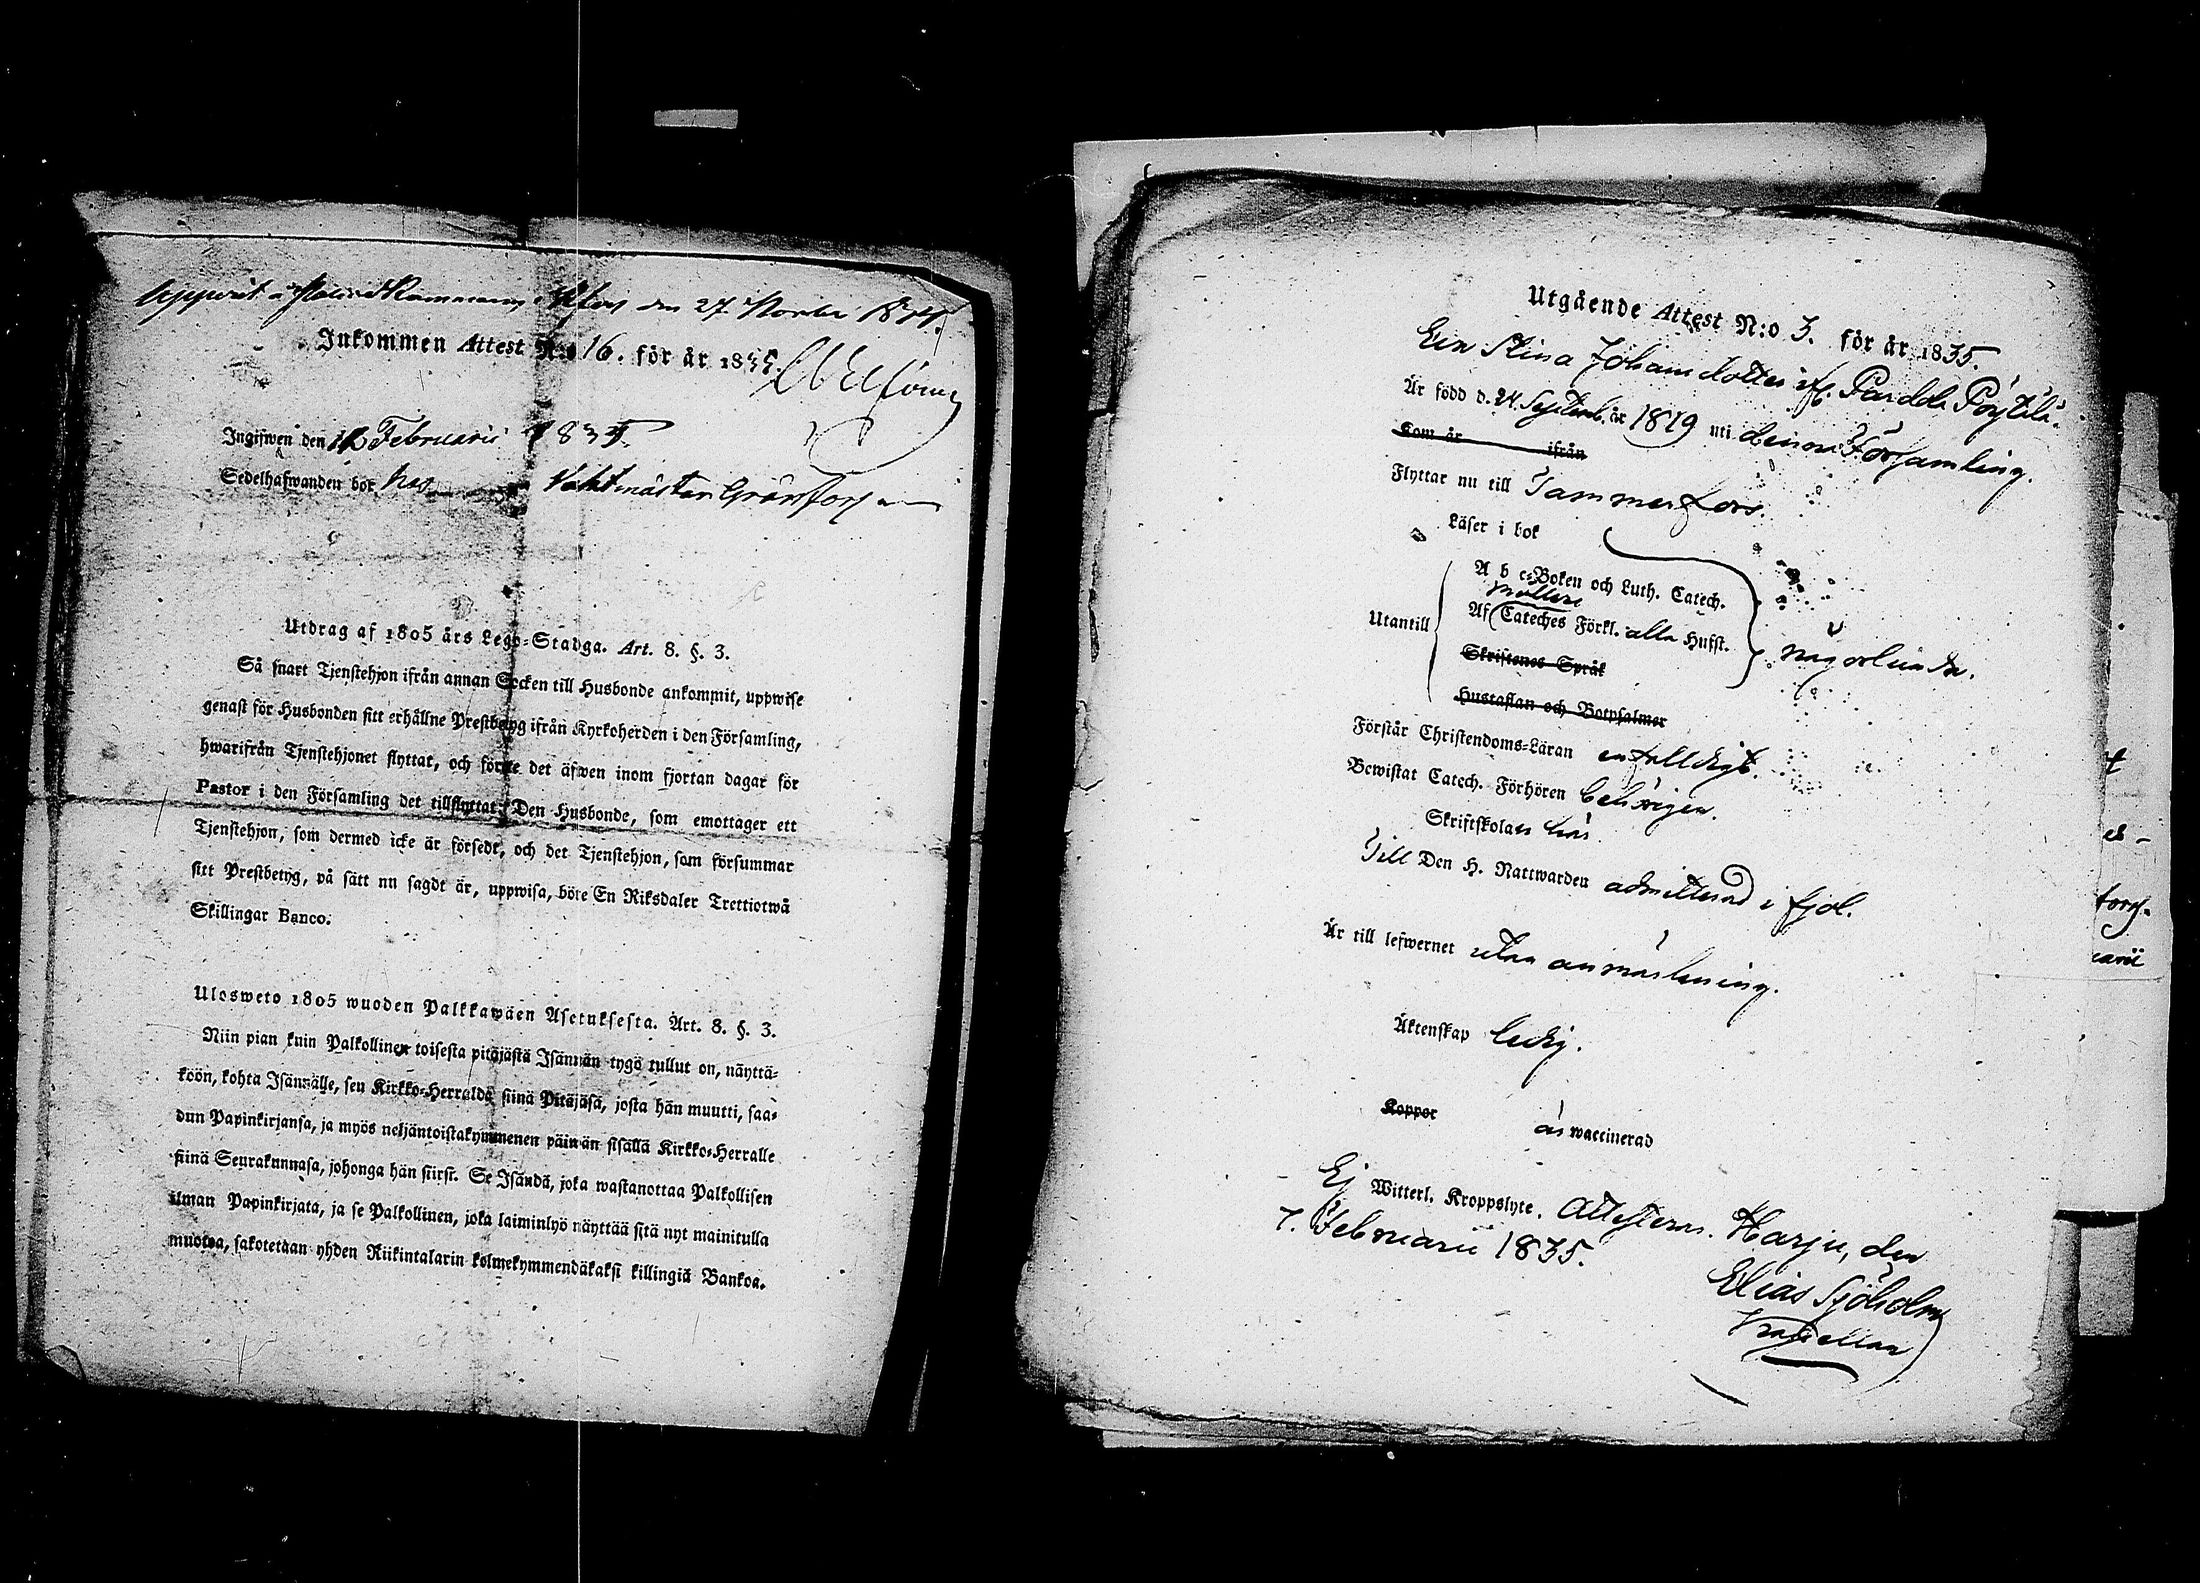 Uppvist i Polis Kammaren, T:fors den 27 Novbr 1835.
Inkommen Attest N:o 16. för år 1835.
Ingifwen den 12 Februarii 1835.
Sedelhafwanden bor hos Vaktmästar Gränfors
Utdrag af 1805 års Lego-Stadga. Art. 8. §. 3.
Så snart Tjenstehjon ifrån annan Socken till Husbonde ankommit, uppwise
genast för Husbonden sitt erhållne Prestbetyg ifrån Kyrkoherden i den Församling,
hwarifrån Tjenstehjonet flyttat, och förete det äfwen inom fjortan dagar för
Pastor i den Församling det tillflyttat. Den Husbonde, som emottager ett
Tjenstehjon, som dermed icke är försedt, och det Tjenstehjon, som försummar
sitt Prestbetyg, på sätt nu sagdt är, uppwisa, böte En Riksdaler Trettiotwå
Skillingar Banco.
Ulosweto 1805 wuoden Palkkawäen Asetuksesta. Art. 8. §. 3.
Niin pian kuin Palkollinen toisesta pitäjästä Isännän tygö tullut on, näyttä-
köön, kohta Isännälle, sen Kirkko-Herralda siinä Pitäjäsä, josta hän muutti, saa-
dun Papinkirjansa, ja myös neljäntoistakymmenen päiwän sisällä Kirkko-Herralle
siinä Seurakunnasa, johonga hän siirsi. Se Isändä, joka wastanottaa Palkollisen
ilman Papinkirjata, ja se Palkollinen, joka laiminlyö näyttää sitä nyt mainitulla
muotoa, sakotetaan yhden Riikintalarin kolmekymmendäkaksi killingiä Bankoa.
Utgående Attest N:o 3. för år 1835.
Eva Stina Johansdotter ifr. Pardala Pöytälä.
Är född d. 24 Septemb. år 1819 uti denna Församling.
Kom år ifrån
Flyttar nu till Tammerfors.
Läser i bok
A b c-Boken och Luth. Catech.
Möllers
Utantill Af Cateches Förkl. alla Hufst. någorlunda.
Skriftenes Språk
Hustaflan och Botpsalmer
Förstår Christendoms-Läran enfalldigt.
Bewistat Catech. Förhören behörigen.
Skriftskolan häs.
Till Den H. Nattwarden admitterad i fjol.
Är till lefwernet utan anmärkning.
Äktenskap ledig.
Koppor är waccinerad
Ej Witterl. Kroppslyte. Attesteras. Harju, den
7. Februarii 1835.
Elias Sjöholm
Kapellan